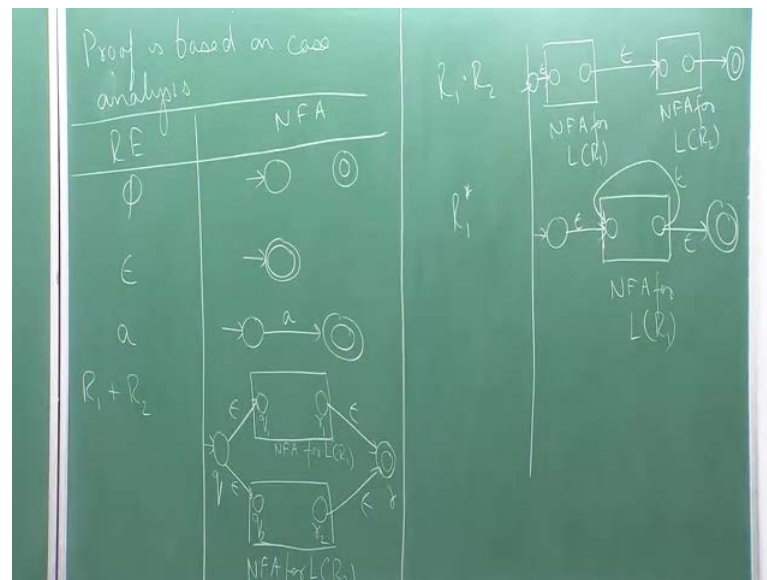 Proof is based on case
analysis
RE NFA
ϕ
ϵ
a
a
R₁ + R₂
ϵ ϵ
q₁ γ₁
NFA for L(R₁)
q ϵ ϵ γ
q₂ γ₂
NFA for L(R₂)
R₁·R₂
ϵ ϵ
NFA for NFA for
L(R₁) L(R₂)
R₁*
ϵ
ϵ ϵ
NFA for
L(R₁)